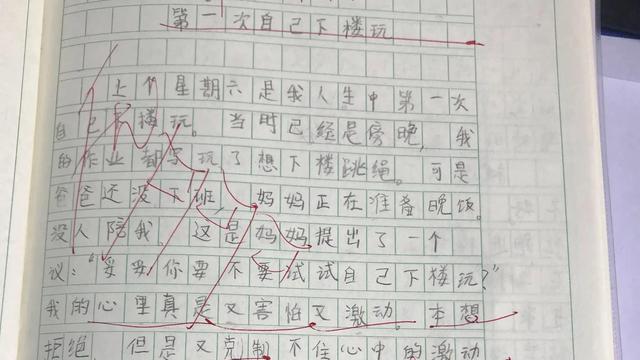 第一次自己下楼玩
上个星期六是我人生中第一次
自己下楼玩。当时已经是傍晚，我
的作业都写玩了想下楼跳绳。可是
爸爸还没下班，妈妈正在准备晚饭。
没人陪我。这是妈妈提出了一个
议：“要要你要不要试试自己下楼玩？”
我的心里真是又害怕又激动。本想
拒绝，但是又克制不住心中的激动